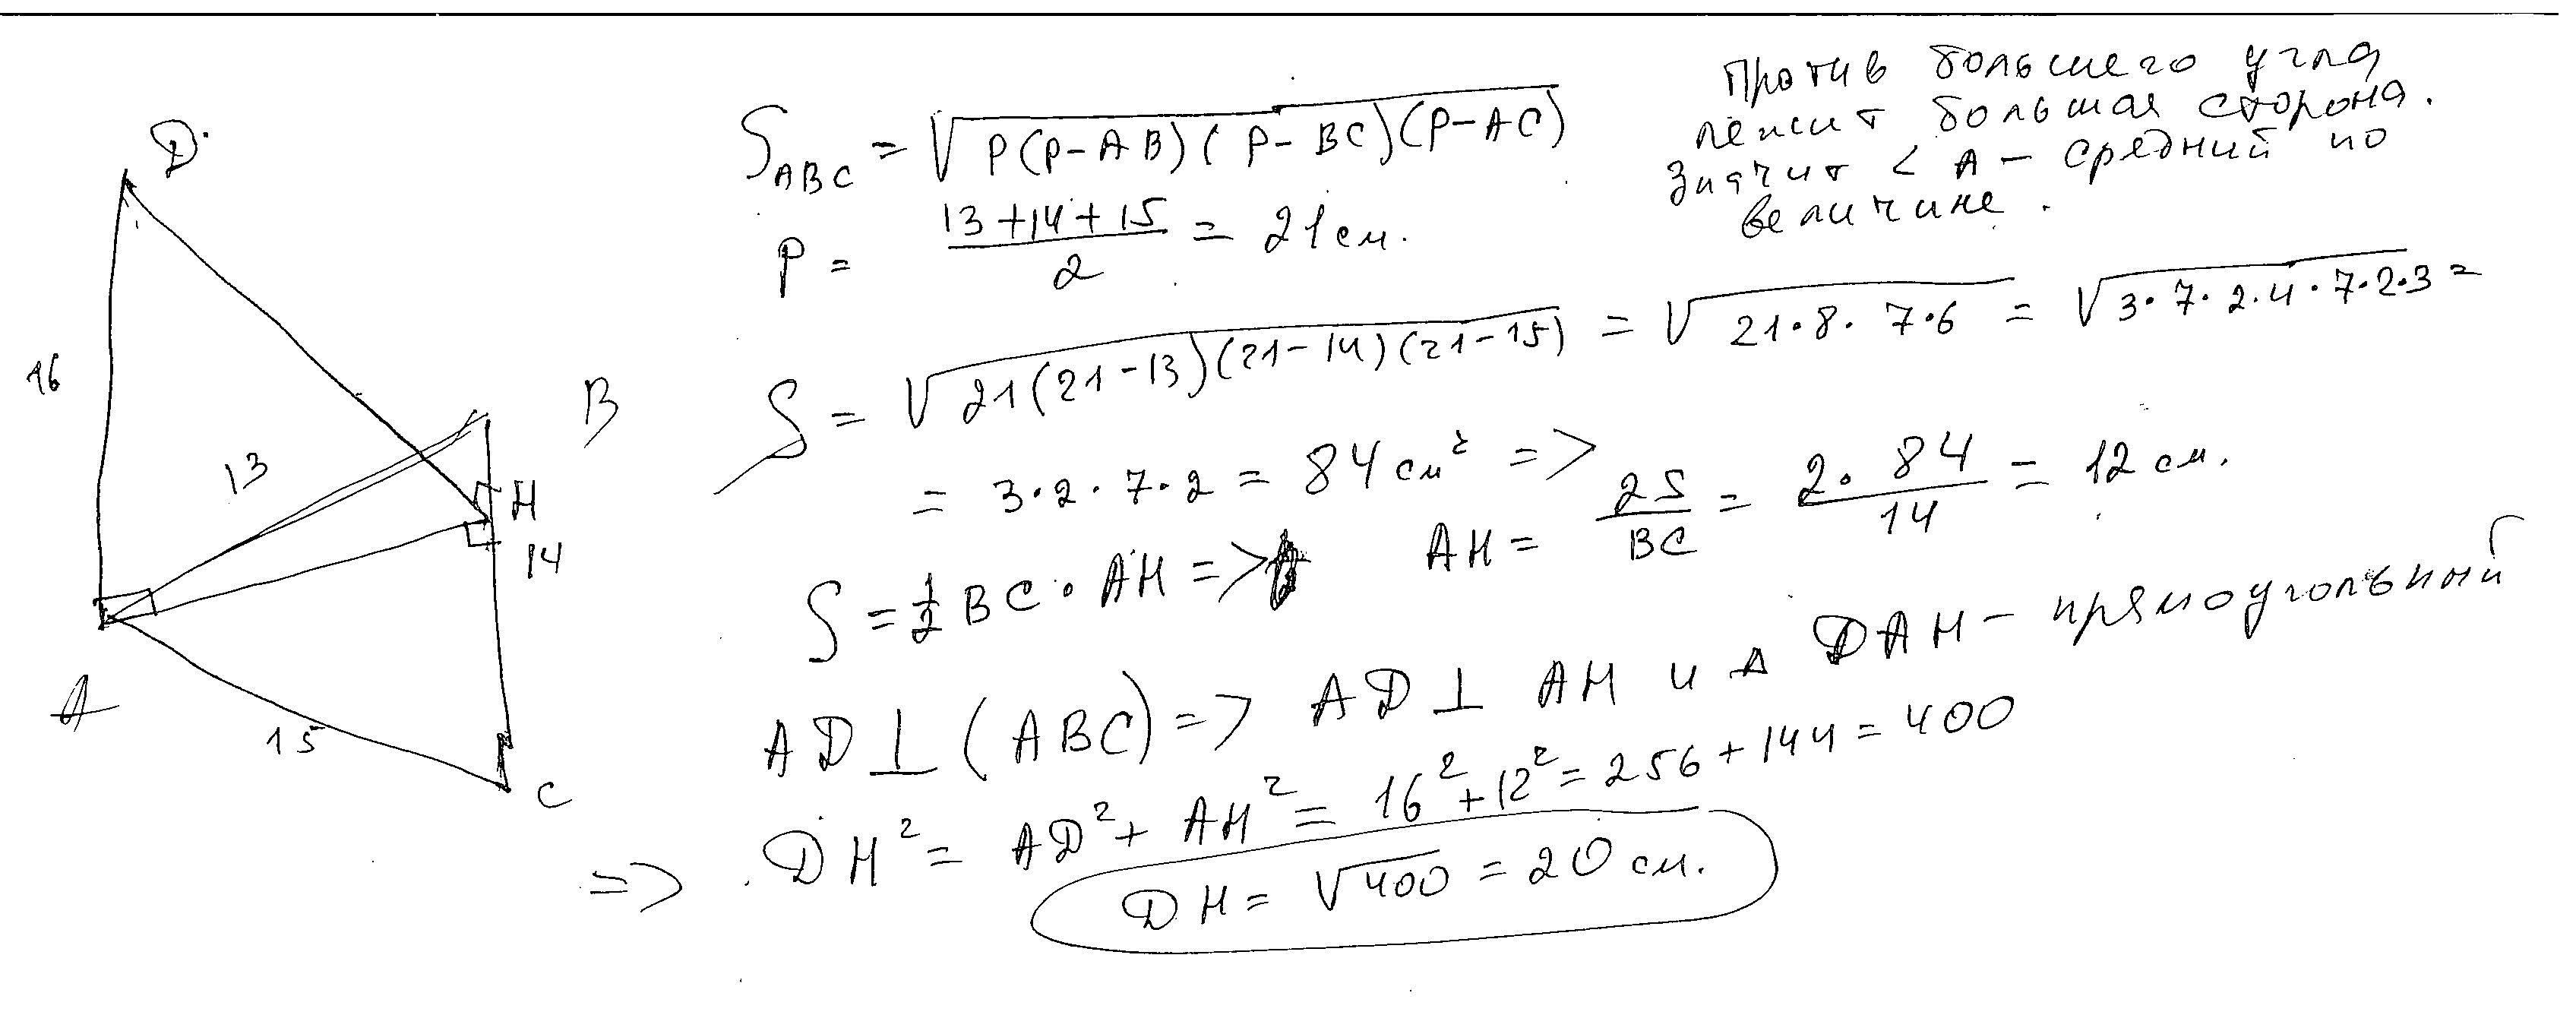 D.
16
13
B
H
14
A
15
C
S_ABC = √P(P-AB)(P-BC)(P-AC)
P = (13+14+15)/2 = 21 см.
Против большего угла
лежит большая сторона.
Значит < A – средний по
величине.
S = √21(21-13)(21-14)(21-15) = √21·8·7·6 = √3·7·2·4·7·2·3 =
= 3·2·7·2 = 84 см² =>
S = 1/2 BC · AH => AH = 2S/BC = 2·84/14 = 12 см.
AD ⊥ (ABC) => AD ⊥ AH и Δ DAH – прямоугольный
=> DH² = AD² + AH² = 16² + 12² = 256 + 144 = 400
DH = √400 = 20 см.